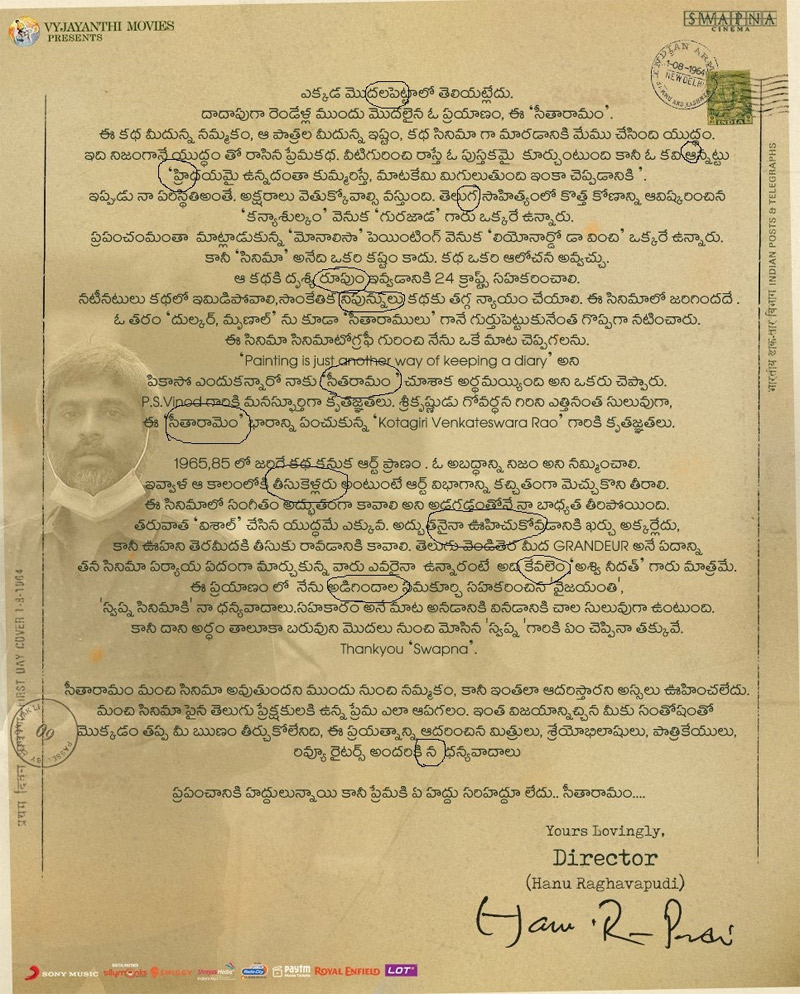 VYJAYANTHI MOVIES
PRESENTS
SWAPNA
CINEMA
INDIAN ARMY
1-08-1964
NEW DELHI
INDIA
ఎక్కడ మొదలపెట్టాలో తెలియట్లేదు.
దాదాపుగా రెండేళ్ల ముందు మొదలైన ఓ ప్రయాణం, ఈ ‘సీతారామం’.
ఈ కథ మీదున్న నమ్మకం, ఆ పాత్రల మీదున్న ఇష్టం, కథ సినిమా గా మారడానికి మేము చేసింది యుద్ధం.
ఇది నిజంగానే యుద్ధం తో రాసిన ప్రేమకథ. వీటిగురించి రాస్తే ఓ పుస్తకమై కూర్చుంటుంది కానీ ఓ కవి ఆన్నట్టు
‘హ్రిదయమై ఉన్నదంతా కుమ్మరిస్తే, మాటకేమి మిగులుతుంది ఇంకా చెప్పడానికి ’.
ఇప్పడు నా పరిస్థితిఅంతే. అక్షరాలు వెతుక్కోవాల్సి వస్తుంది. తెలుగ సాహిత్యంలో కొత్త కోణాన్ని ఆవిష్కరించిన
‘కన్యాశుల్కం’ వెనుక ‘గురజాడ’ గారు ఒక్కరే ఉన్నారు.
ప్రపంచంమంతా మాట్లాడుకున్న ‘మోనాలిసా’ పెయింటింగ్ వెనుక ‘లియోనార్డో డా వించి’ ఒక్కరే ఉన్నారు.
కానీ ‘సినిమా’ అనేది ఒకరి కష్టం కాదు. కథ ఒకరి ఆలోచన అవ్వచ్చు.
ఆ కథకి దృశ్య రూపుం ఇవ్వడానికి 24 క్రాఫ్ట్స్ సహకరించాలి.
నటీనటులు కథలో ఇమిడిపోవాలి,సాంకేతిక నిపున్నులు కథకు తగ్గ న్యాయం చేయాలి. ఈ సినిమాలో జరిగిందదే .
ఓ తరం ‘దుల్కర్, మృణాల్’ ను కూడా ‘సీతారాములు’ గానే గుర్తుపెట్టుకునేంత గొప్పగా నటించారు.
ఈ సినిమా సినిమాటోగ్రఫీ గురించి నేను ఒకే మాట చెప్పగలను.
‘Painting is just another way of keeping a diary’ అని
పికాసో ఎందుకన్నారో నాకు ‘సీతరామం ’ చూశాక అర్థమయ్యింది అని ఒకరు చెప్పారు.
P.S.Vinod గారికి మనస్ఫూర్తిగా కృతజ్ఞతలు. శ్రీకృష్ణుడు గోవర్ధన గిరిని ఎత్తినంత సులువుగా,
ఈ ‘సీతారామెం’ భారాన్ని పంచుకున్న ‘Kotagiri Venkateswara Rao’ గారికి కృతజ్ఞతలు.
1965,85 లో జరిగే కథ కనుక ఆర్ట్ ప్రాణం . ఓ అబద్ధాన్ని నిజం అని నమ్మించాలి.
ఇవ్వాళ ఆ కాలంలోకి తీసుకెళ్లరు అంటుంటే ఆర్ట్ విభాగాన్ని కచ్చితంగా మెచ్చుకొని తీరాలి.
ఈ సినిమాలో సంగీతం అద్భుతంగా కావాలి అని అడగడంతోనే నా బాధ్యత తీరిపోయింది.
తరువాత ‘విశాల్’ చేసిన యుద్ధమే ఎక్కువ. అద్భుతనైనా ఊహించుకోవడానికి ఖర్చు అక్కర్లేదు,
కానీ ఊహని తెరమీదకి తీసుకు రావడానికి కావాలి. తెలుగు వెండితెర మీద GRANDEUR అనే పదాన్ని
తన సినిమా పర్యాయ పదంగా మార్చుకున్న వారు ఎవరైనా ఉన్నారంటే అది కేవలెం ‘అశ్వి నీదత్’ గారు మాత్రమే.
ఈ ప్రయాణం లో నేను అడిగిందాల సమకూర్చి సహకరించిన ‘వైజయంతి’,
‘స్వప్న సినిమాకి’ నా ధన్యవాదాలు.సహకారం అనే మాట అనడానికి వినడానికి చాల సులువుగా ఉంటుంది.
కానీ దాని అర్థం తాలూకా బరువుని మొదలు నుంచి మోసిన ‘స్వప్న ’గారికి ఏం చెప్పినా తక్కువే.
Thankyou ‘Swapna’.
సీతారామం మంచి సినిమా అవుతుందని ముందు నుంచి నమ్మకం, కానీ ఇంతలా ఆదరిస్తారని అస్సలు ఊహించలేదు.
మంచి సినిమా పైన తెలుగు ప్రేక్షకులకి ఉన్న ప్రేమ ఎలా ఆపగలం. ఇంత విజయాన్నిచ్చిన మీకు సంతోషంతో
మొక్కడం తప్ప మీ ఋణం తీర్చుకోలేనిది, ఈ ప్రయత్నాన్ని ఆదరించిన మిత్రులు, శ్రేయోభిలాషులు, పాత్రికేయులు,
రివ్యూ రైటర్స్ అందరికీ న ధన్యవాదాలు
ప్రపంచానికి హద్దులున్నాయి కానీ ప్రేమకి ఏ హద్దు సరిహద్దూ లేదు.. సీతారామం....
Yours Lovingly,
Director
(Hanu Raghavapudi)
భారతీయ
INDIAN POSTS & TELEGRAPHS
FIRST DAY COVER 1-8-1964
SONY MUSIC
sillymonks
SWIGGY
Shreyas Media
Radio City
paytm
ROYAL ENFIELD
LOT